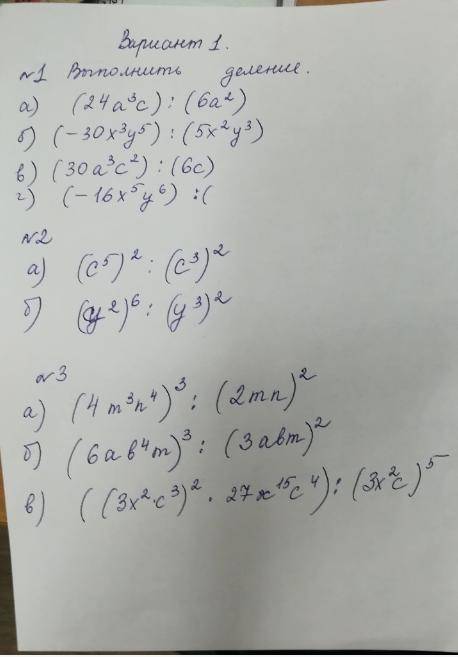 Вариант 1.
№1 Выполнить деление.
а) (24a³c) : (6a²)
б) (-30x³y⁵) : (5x²y³)
в) (30a³c²) : (6c)
г) (-16x⁵y⁶) :(
№2
а) (c⁵)² : (c³)²
б) (y²)⁶ : (y³)²
№3
а) (4m³n⁴)³ : (2mn)²
б) (6ab⁴m)³ : (3abm)²
в) ((3x²·c³)² · 27x¹⁵c⁴) : (3x²c)⁵